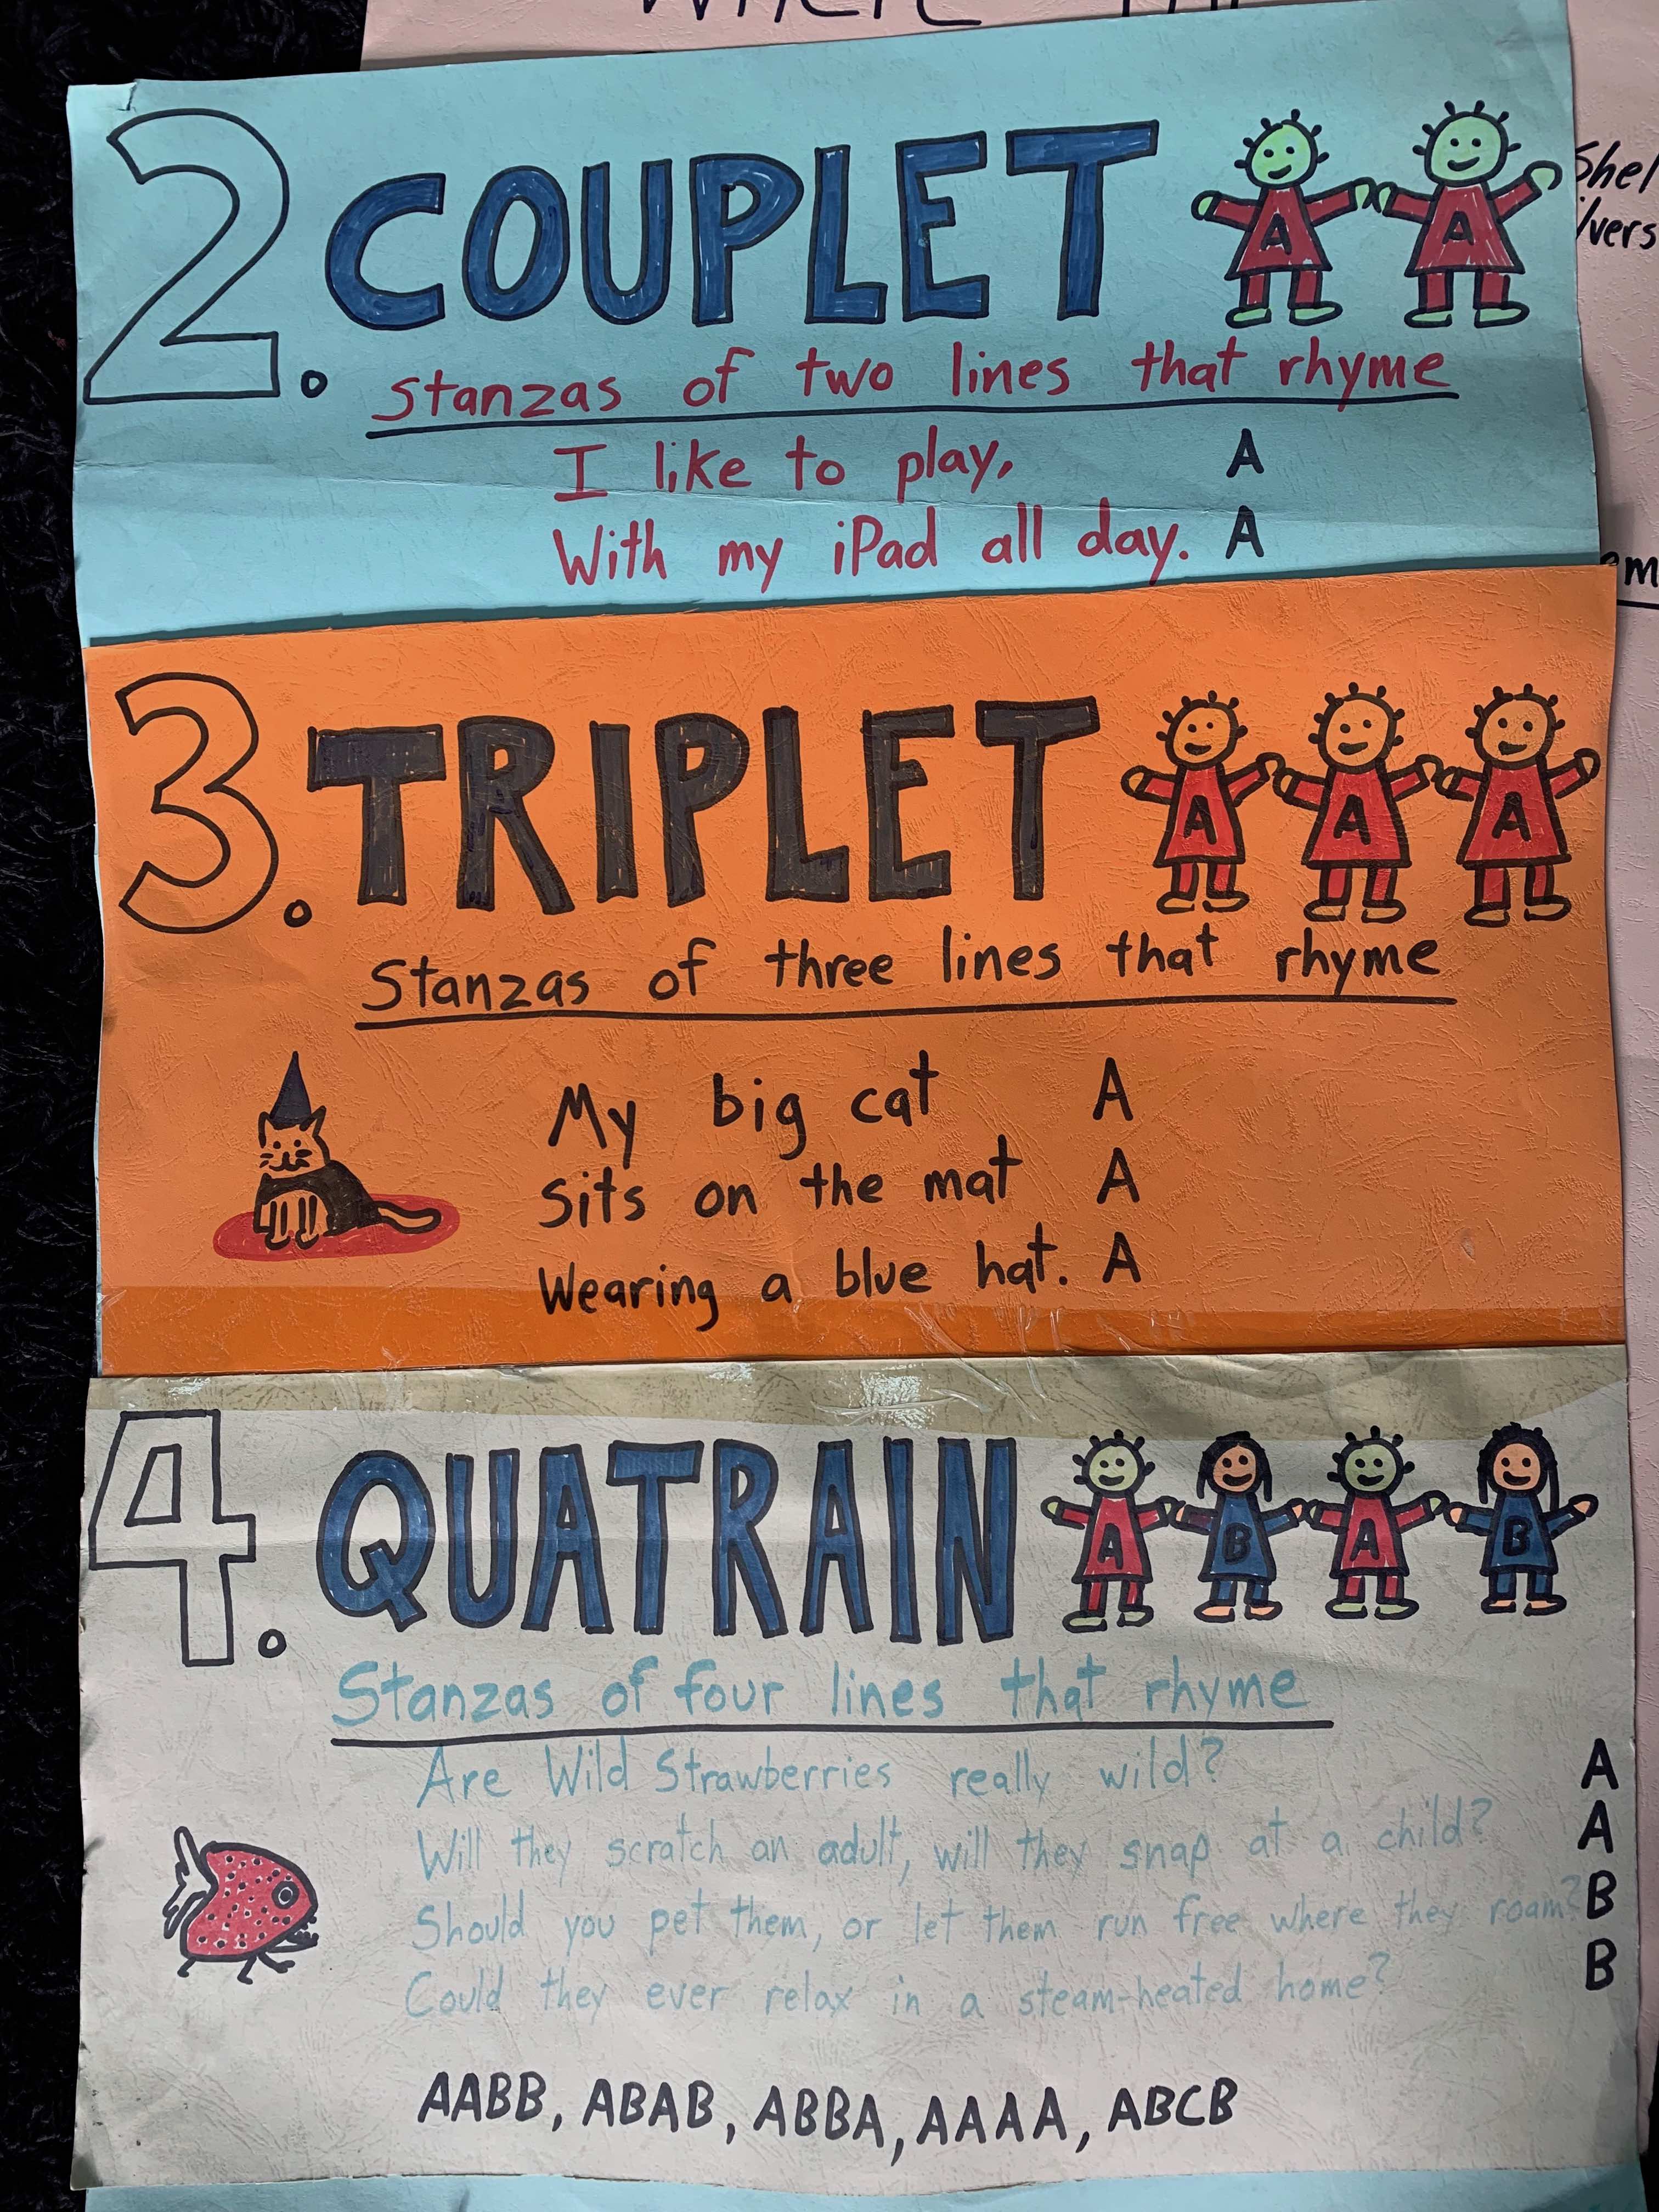 2. COUPLET
A A
Stanzas of two lines that rhyme
I like to play, A
With my iPad all day. A
3. TRIPLET
A A A
Stanzas of three lines that rhyme
My big cat A
Sits on the mat A
Wearing a blue hat. A
4. QUATRAIN
A B A B
Stanzas of four lines that rhyme
Are Wild Strawberries really wild? A
Will they scratch an adult, will they snap at a child? A
Should you pet them, or let them run free where they roam? B
Could they ever relax in a steam-heated home? B
AABB, ABAB, ABBA, AAAA, ABCB
Shel